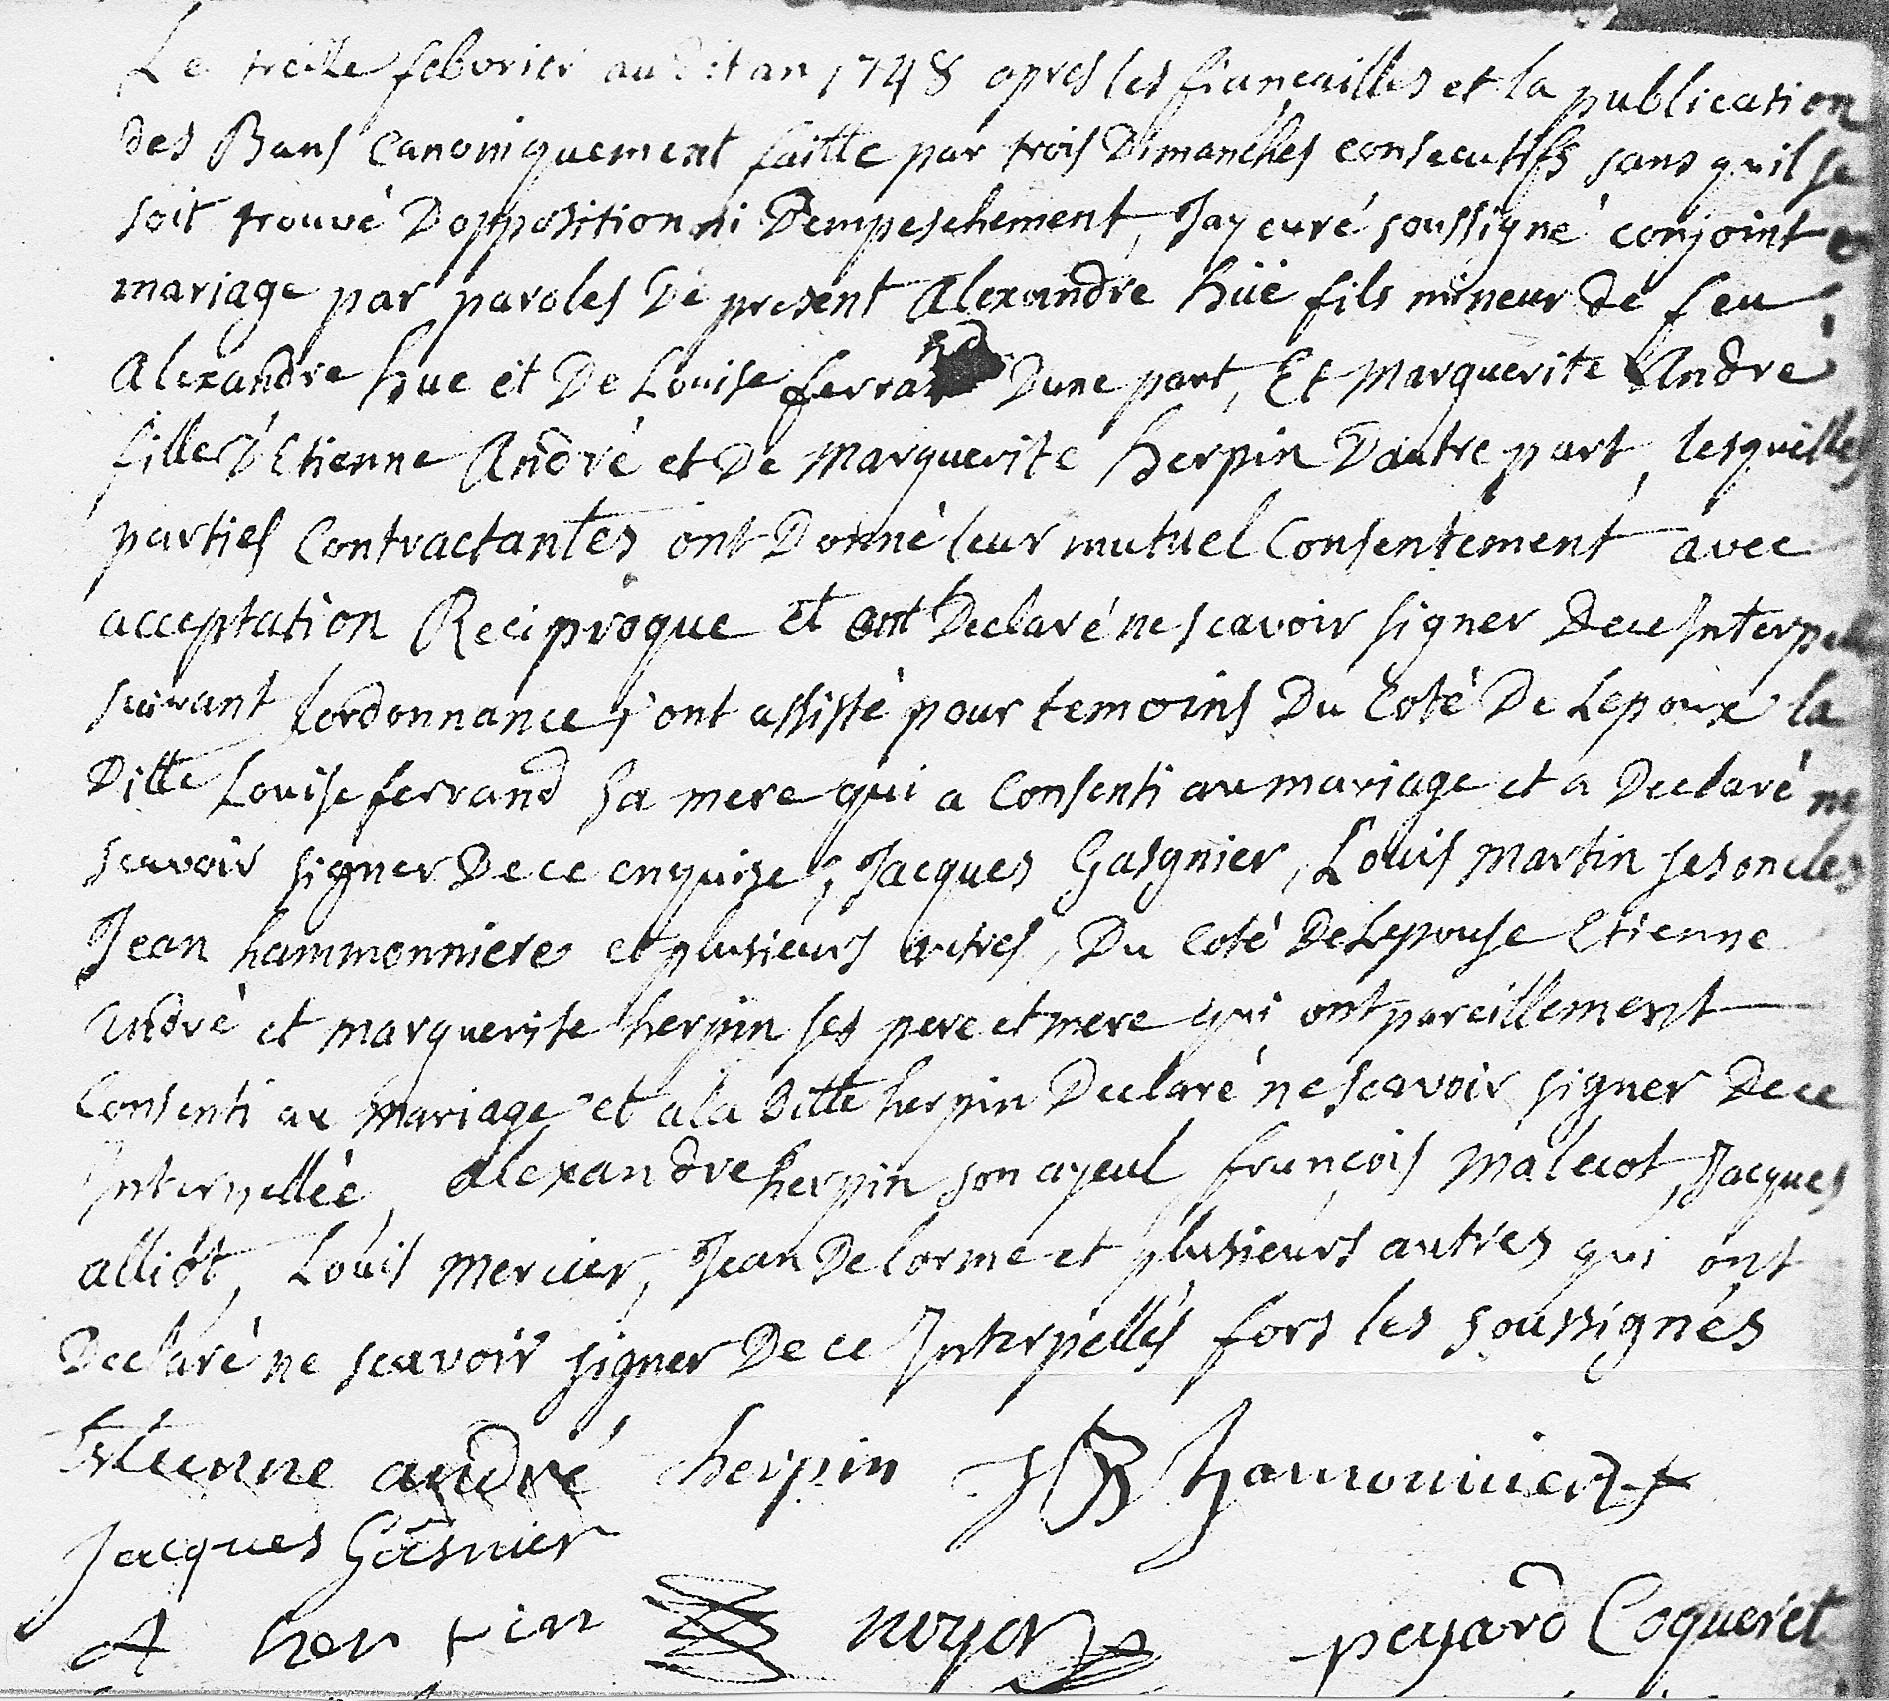 Le treize febvrier audit an 1748 apres les fiançailles et la publication
des Bans Canoniquement faitte par trois Dimanches consecutifs sans quil se
soit trouvé Dopposition ni Dempeschement, Jay curé soussigné conjoint en
mariage par paroles De present Alexandre hüe fils mineur de feu
Alexandre hue et De Louise ferrand Dune part, Et Marguerite André
fille d'Etienne André et De Marguerite herpin Dautre part, lesquelles
parties Contractantes ont Donné leur mutuel Consentement avec
acceptation Reciproque et ont Declaré ne scavoir signer Dece Interpellés
suivant lordonnance, y ont assisté pour temoins Du Coté De Lepoux la
Ditte Louise ferrand sa mere qui a Consenti au mariage et a Declaré ne
scavoir signer De ce enquise, Jacques Gasgnier, Louis Martin ses oncles
Jean hammonniere et plusieurs autres, Du Coté De Lepouse Etienne
André et marguerite herpin ses pere et mere qui ont pareillement
Consenti au mariage et a la Ditte herpin Declaré ne scavoir signer De ce
Interpellée, alexandre herpin son ayeul, françois Malecot, Jacques
alliot, Louis Mercier, Jean Delorme et plusieurs autres qui ont
Declaré ne scavoir signer De ce Interpellés fors les soussignés
Etienne andré herpin J hamonniere
Jacques Gasnier
A her pin noyer payard Coqueret